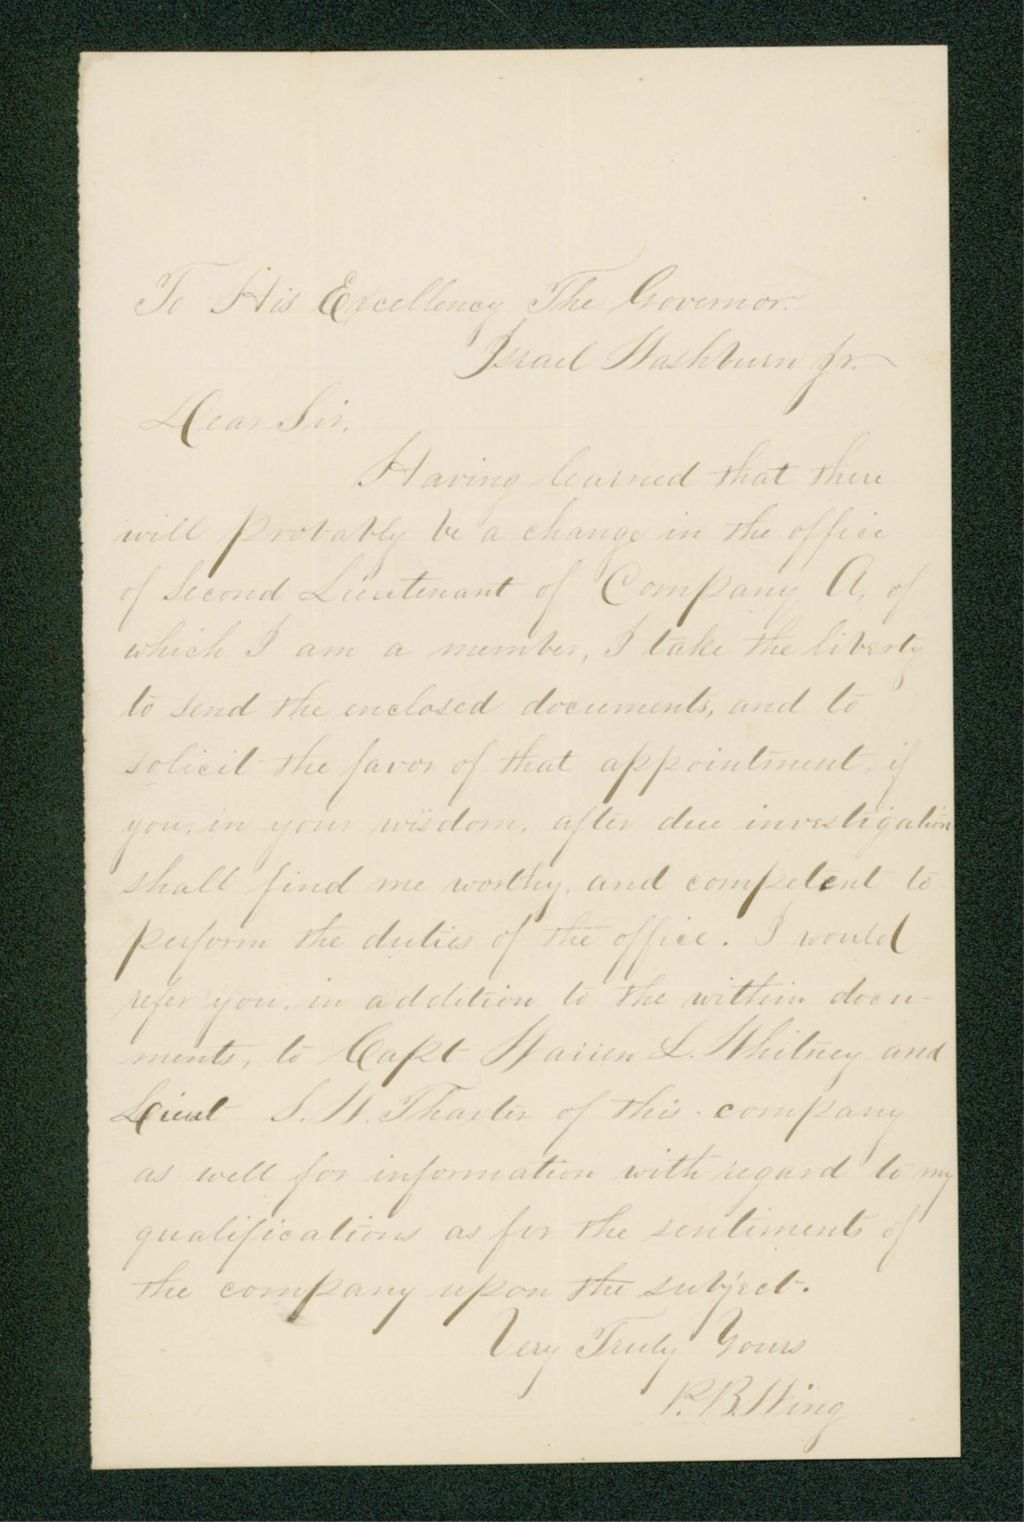 To His Excellency The Governor.
Israel Washburn Jr.
Dear Sir,
Having learned that there
will probably be a change in the office
of Second Lieutenant of Company A, of
which I am a member, I take the liberty
to send the enclosed documents, and to
solicit the favor of that appointment, if
you, in your wisdom, after due investigation
shall find me worthy, and competent to
perform the duties of the office. I would
refer you, in addition to the within docu-
ments, to Capt Warren L. Whitney and
Lieut S. W. Thaxter of this company
as well for information with regard to my
qualifications as for the sentiments of
the company upon the subject.
Very Truly Yours
P. B. Wing